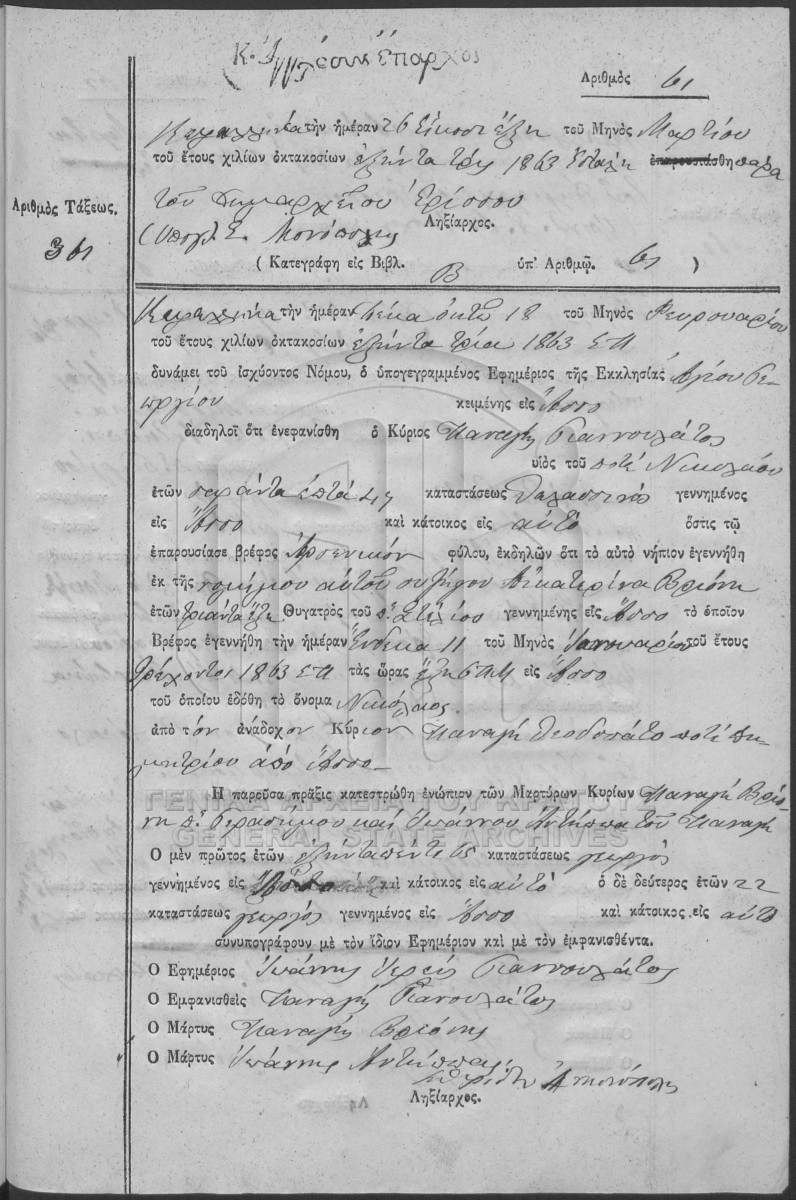 έπαρχος
Ἀριθμὸς 61
τὴν ἡμέραν 26 Εἴκοσι ἕξη τοῦ Μηνὸς Μαρτίου
τοῦ ἔτους χιλίων ὀκτακοσίων ἑξήντα τρίς 1863 Ἐστάλη ἐπαρουσιάσθη παρά
τοῦ Δημαρχείου Ἐρίσσου
Ἀριθμὸς Τάξεως.
361
(Υπογ.) Σ.
Ληξίαρχος.
( Κατεγράφη εἰς Βιβλ. Β ὑπ' Ἀριθμῷ. 61 )
τὴν ἡμέραν δέκα ὀκτώ 18 τοῦ Μηνὸς Φευρουαρίου
τοῦ ἔτους χιλίων ὀκτακοσίων ἑξήντα τρία 1863 Ε.Π
δυνάμει τοῦ ἰσχύοντος Νόμου, ὁ ὑπογεγραμμένος Ἐφημέριος τῆς Ἐκκλησίας Αγίου Γε-
ωργίου κειμένης εἰς Ἄσσο
διαδηλοῖ ὅτι ἐνεφανίσθη ὁ Κύριος Παναγής Γιαννουλάτος
υἱὸς τοῦ ποτέ Νικολάου
ἐτῶν σαράντα ἑπτά 47 καταστάσεως θαλασσινός γεννημένος
εἰς Ἄσσο καὶ κάτοικος εἰς αὐτό ὅστις τῷ
ἐπαρουσίασε βρέφος Ἀρσενικόν φύλου, ἐκδηλῶν ὅτι τὸ αὐτὸ νήπιον ἐγεννήθη
ἐκ τῆς νομίμου αὐτοῦ συζήγου Αἰκατερίνα Βριόνη
ἐτῶν τριάντα ἕξη Θυγατρὸς τοῦ π. Στελίου γεννημένης εἰς Ἄσσο τὸ ὁποῖον
Βρέφος ἐγεννήθη τὴν ἡμέραν Ἕνδεκα 11 τοῦ Μηνὸς Ιανουαρίου τοῦ ἔτους
τρέχοντος 1863 Ε.Π τὰς ὥρας ἕξη 6 π.Μ εἰς Ἄσσο
τοῦ ὁποίου ἐδόθη τὸ ὄνομα Νικόλαος.
ἀπὸ τόν ἀνάδοχον Κύριον Παναγή Θεοδοσάτο ποτέ Δη-
μητρίου ἀπό Ἄσσο
Ἡ παροῦσα πρᾶξις κατεστρώθη ἐνώπιον τῶν Μαρτύρων Κυρίων Παναγή Βριό-
νη π. Γερασίμου καί Ἰωάννου Αντίππα τοῦ Παναγή
ΓΕΝΙΚΑ ΑΡΧΕΙΑ ΤΟΥ ΚΡΑΤΟΥΣ
GENERAL STATE ARCHIVES
Ὁ μὲν πρῶτος ἐτῶν ἑξήντα πέντε 65 καταστάσεως γεωργός
γεννημένος εἰς καὶ κάτοικος εἰς αὐτό ὁ δὲ δεύτερος ἐτῶν 22
καταστάσεως γεωργός γεννημένος εἰς Ἄσσο καὶ κάτοικος εἰς αὐτό
συνυπογράφουν μὲ τὸν ἴδιον Ἐφημέριον καὶ μὲ τὸν ἐμφανισθέντα.
Ὁ Ἐφημέριος Ἰωάννης Ἱερεύς Γιαννουλάτος
Ὁ Ἐμφανισθεὶς Παναγής Γιανουλάτος
Ὁ Μάρτυς Παναγής Βριόνης
Ὁ Μάρτυς Ἰωάννης Αντίππας
Ληξίαρχος.